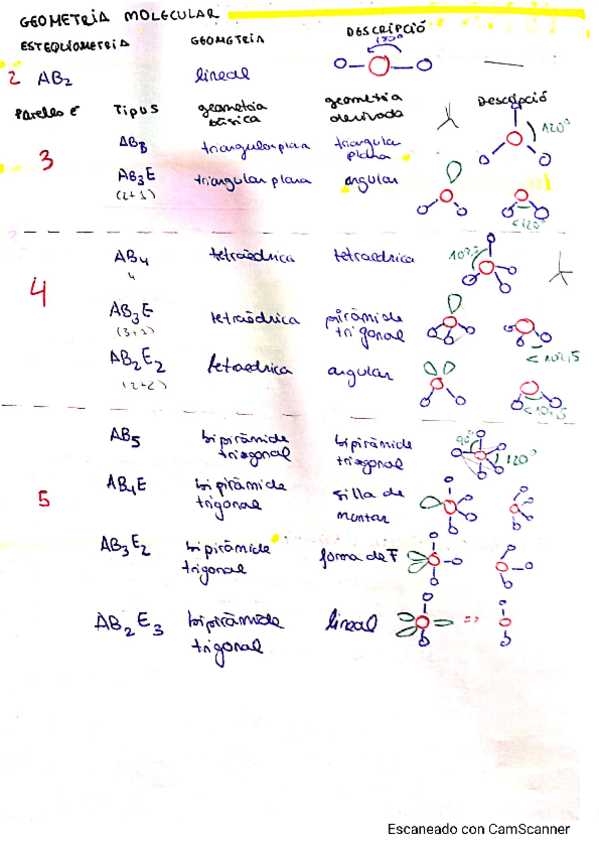 GEOMETRIA MOLECULAR
ESTEQUIOMETRIA GEOMETRIA DESCRIPCIÓ
2 AB₂ lineal
Parells e⁻ TIPUS geometria bàsica geometria derivada Descripció
3
AB₃ triangular plana triangular plana 120°
AB₃E triangular plana angular
(2+1) <120°
4
AB₄ tetraèdrica tetraedrica
4
AB₃E tetraèdrica piràmide trigonal
(3+1)
AB₂E₂ tetraedrica angular
(2+2)
5
AB₅ bipiràmide trigonal bipiràmide trigonal 90° 120°
AB₄E bipiràmide trigonal silla de montar
AB₃E₂ bipiràmide trigonal forma de T
AB₂E₃ bipiràmide trigonal lineal =>
Escaneado con CamScanner